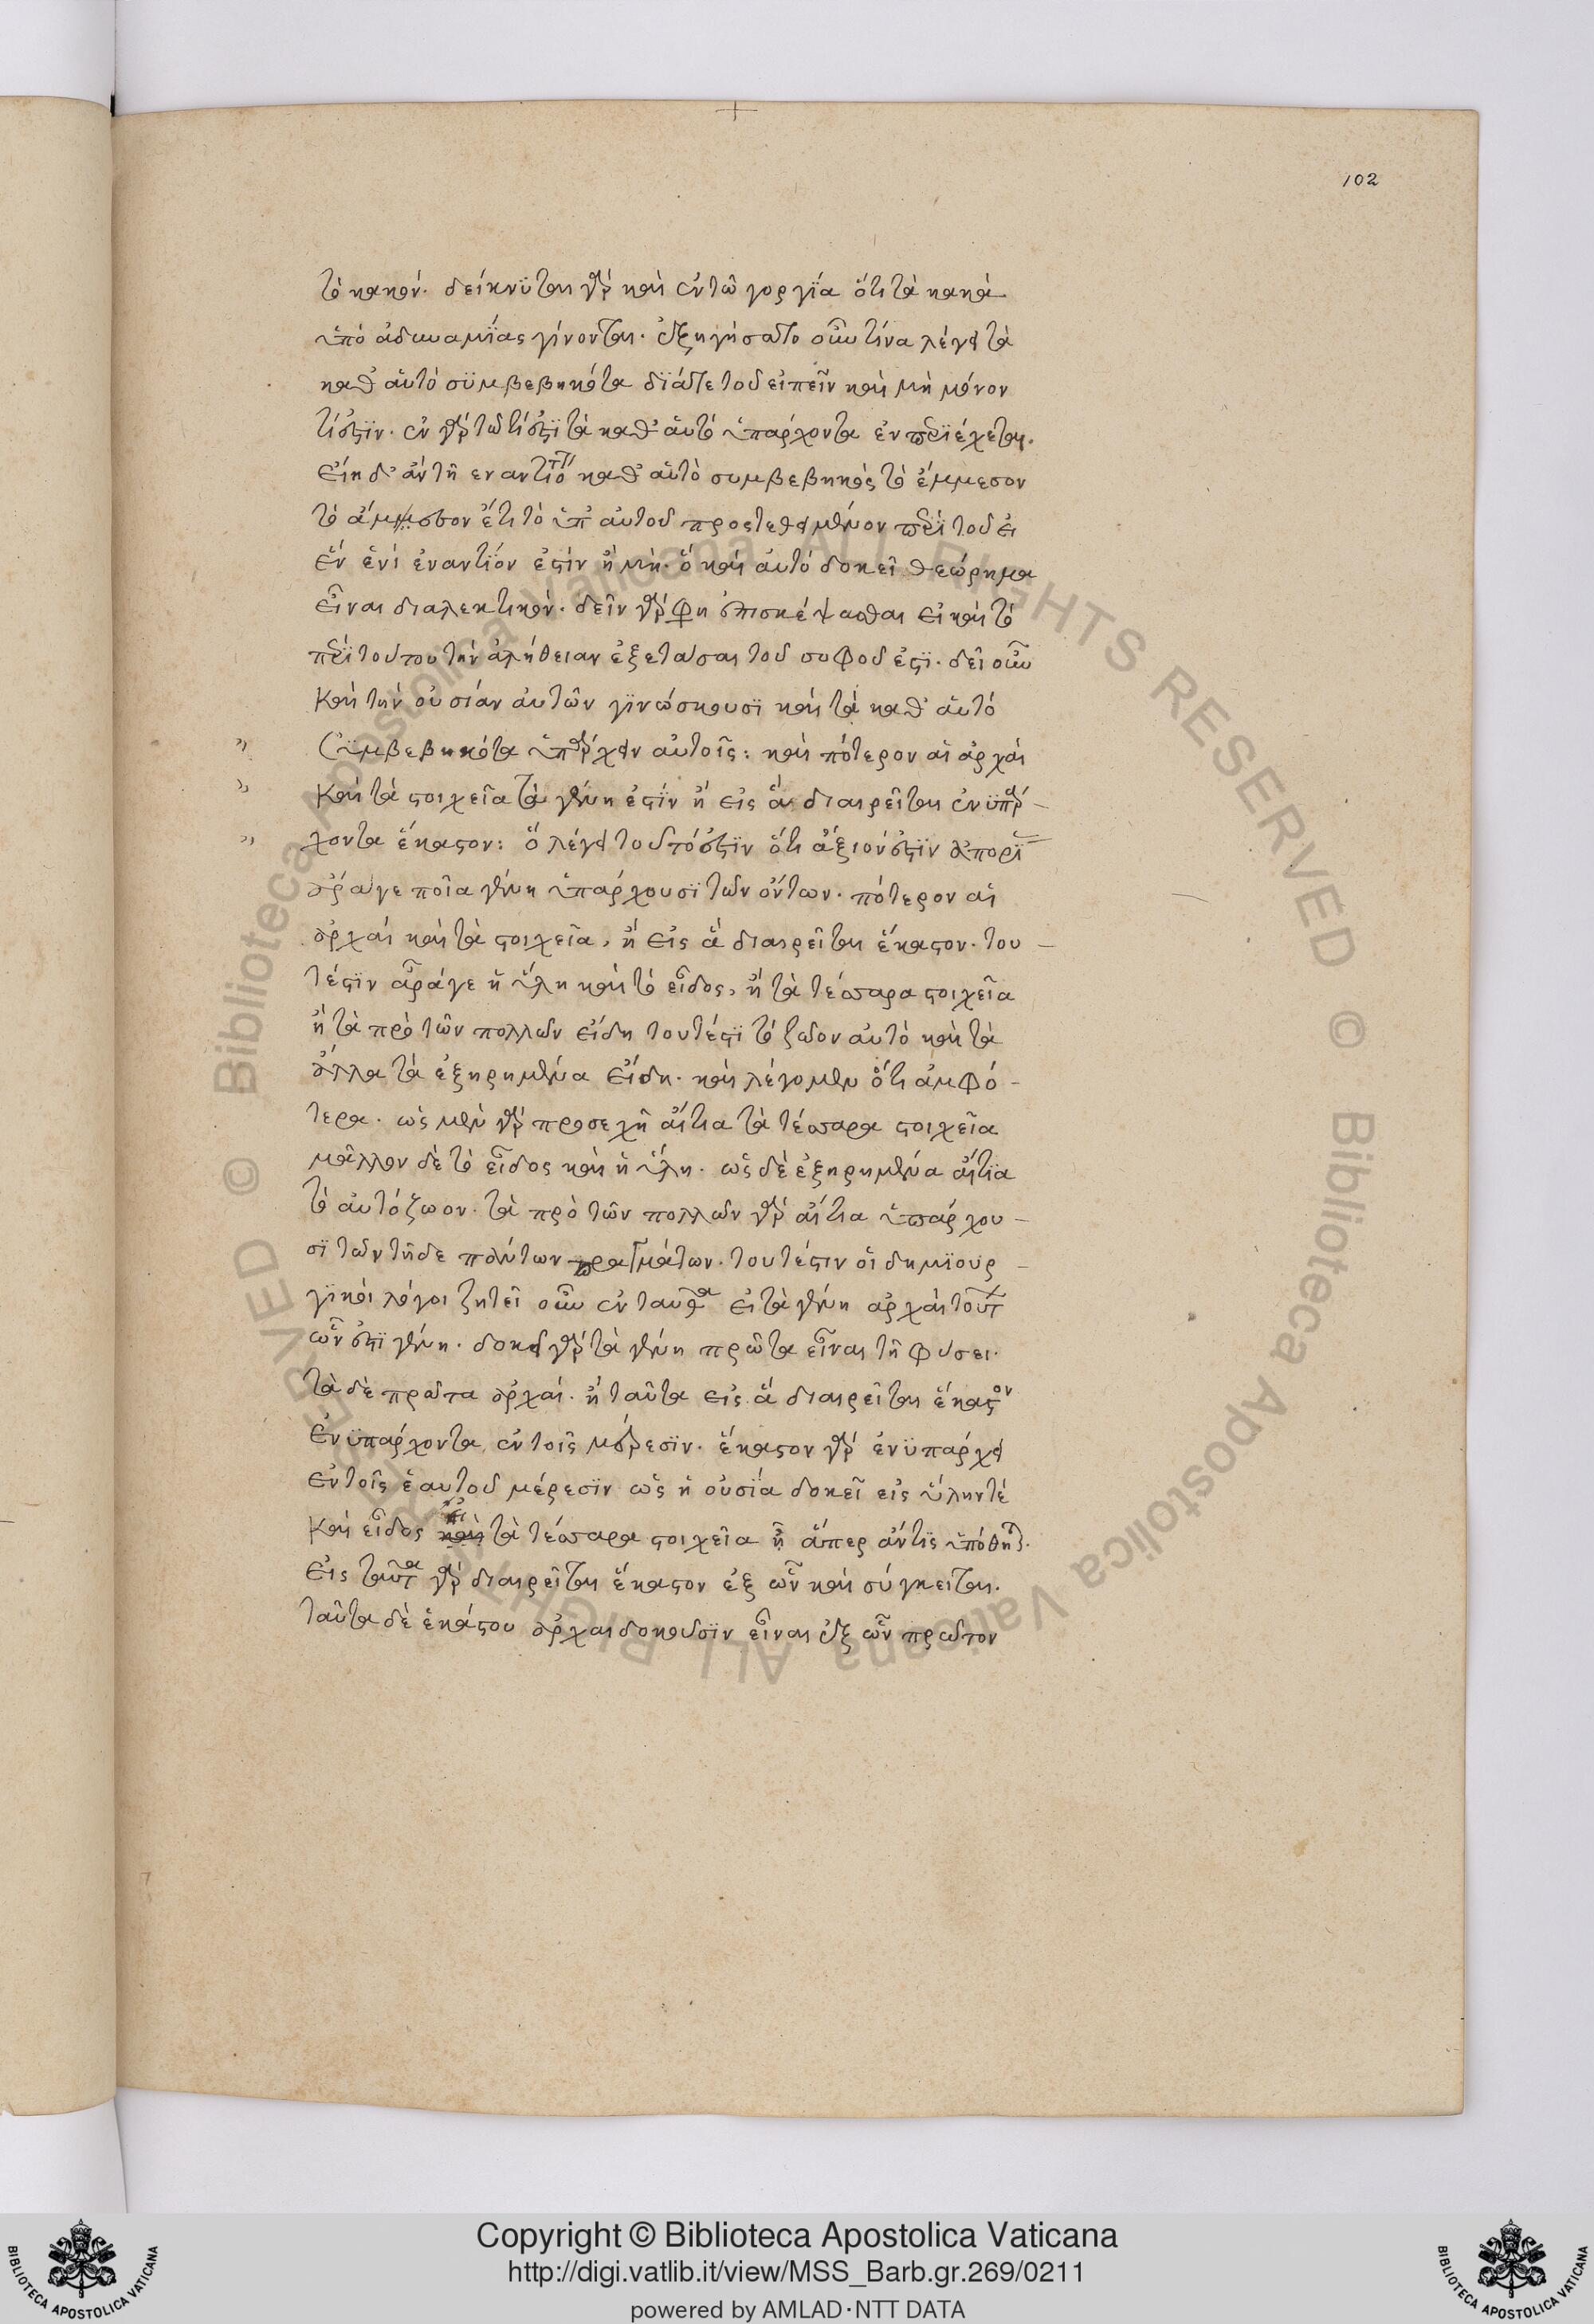 102
τὸ κακόν. δείκνϋται γὰρ καὶ ἐν τῶ γοργΐα ὅτι τὰ κακὰ
ὑπὸ ἀδυναμΐας γίνονται. ἐξηγήσατο οὖν τίνα λέγει τὰ
καθ' αὑτὸ σϋμβεβηκότα δϊά τε τοῦ εἰπεῖν καὶ μὴ μόνον
τί ἐστϊν. ἐν γὰρ τῶ τί ἐστϊ τὰ καθ' αὑτὸ ὑπάρχοντα ἐν περϊέχεται.
εἴη δ' ἂν τῆ καθ' αὑτὸ συμβεβηκὸς τὸ ἔμμεσον
τὸ ἄμεσον ἔτι τὸ ὑπ' αὐτοῦ προστεθειμένον περϊ τοῦ εἰ
ἓν ἑνὶ ἐναντΐον ἐστὶν ἢ μή. ὃ καὶ αὐτὸ δοκεῖ θεώρημα
εἶναι διαλεκτικόν. δεῖν γάρ φη ἐπισκέψασθαι εἰ καὶ τὸ
περϊ τούτου τὴν ἀλήθειαν ἐξετάσαι τοῦ σοφοῦ ἐστϊ. δεῖ οὖν
καὶ τὴν οὐσίαν αὐτῶν γϊνώσκουσϊ καὶ τὰ καθ' αὑτὸ
" σϋμβεβηκότα ὑπάρχειν αὐτοῖς: καὶ πότερον αἱ ἀρχαὶ
" καὶ τὰ στοιχεῖα τὰ γένη ἐστϊν ἢ εἰς ἃ διαιρεῖται ἐνϋπάρ-
" χοντα ἕκαστον: ὃ λέγει τοῦτό ἐστϊν ὅτι ἄξιόν ἐστϊν ἀπορϊ
ἆρά γε ποῖα γένη ὑπάρχουσϊ τῶν ὄντων. πότερον αἱ
ἀρχαὶ καὶ τὰ στοιχεῖα, ἢ εἰς ἃ διαιρεῖται ἕκαστον. του-
τέστιν ἆρά γε ἡ ὕλη καὶ τὸ εἶδος, ἢ τὰ τέσσαρα στοιχεῖα
ἢ τὰ πρὸ τῶν πολλῶν εἴδη τουτέστϊ τὸ ζῶον αὐτὸ καὶ τὰ
ἄλλα τὰ ἐξηρημένα εἴδη. καὶ λέγομεν ὅτι ἀμφό-
τερα. ὡς μὲν γὰρ προσεχῆ αἴτια τὰ τέσσαρα στοιχεῖα
μᾶλλον δὲ τὸ εἶδος καὶ ἡ ὕλη. ὡς δὲ ἐξηρημένα αἴτϊα
τὸ αὐτόζωον. τὰ πρὸ τῶν πολλῶν γὰρ αἴτια ὑπάρχου-
σϊ τῶν τῆδε πάντων πραγμάτων. τουτέστιν οἱ δημϊουρ-
γϊκοὶ λόγοι ζητεῖ οὖν ἐνταῦθα εἰ τὰ γένη ἀρχαὶ τούτ
ὧν ἐστϊ γένη. δοκεῖ γὰρ τὰ γένη πρῶτα εἶναι τῆ φύσει.
τὰ δὲ πρῶτα ἀρχαί. ἢ ταῦτα εἰς ἃ διαιρεῖται ἕκαστον
ἐνϋπάρχοντα ἐν τοῖς μέρεσϊν. ἕκαστον γὰρ ἐνϋπάρχει
ἐν τοῖς ἑαυτοῦ μέρεσϊν ὡς ἡ οὐσία δοκεῖ εἰς ὕλην τέ
καὶ εἶδος τὰ τέσσαρα στοιχεῖα ἢ ἅπερ ἄν τϊς ὑπόθηται.
εἰς ταῦτα γὰρ διαιρεῖται ἕκαστον ἐξ ὧν καὶ σύγκειται.
ταῦτα δὲ ἑκάστου ἀρχαι δοκοῦσϊν εἶναι ἐξ ὧν πρώτον
Copyright © Biblioteca Apostolica Vaticana
http://digi.vatlib.it/view/MSS_Barb.gr.269/0211
powered by AMLAD·NTT DATA
BIBLIOTECA APOSTOLICA VATICANA
BIBLIOTECA APOSTOLICA VATICANA
© Biblioteca Apostolica Vaticana ALL RIGHTS RESERVED
© Biblioteca Apostolica Vaticana ALL RIGHTS RESERVED